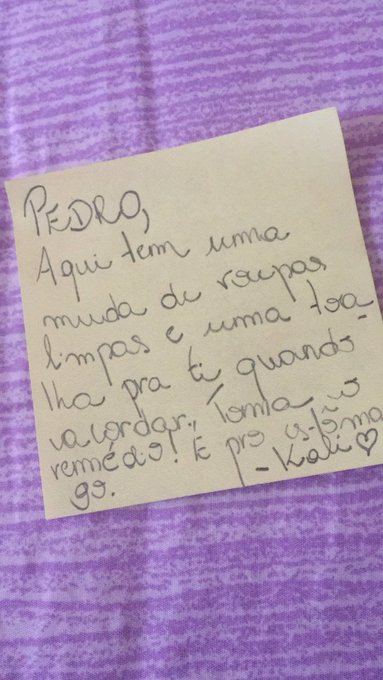 PEDRO,
Aqui tem uma
muda de roupas
limpas e uma toa-
lha pra ti quando
acordar. Toma o
remédio! É pro estôma
go.
-Kali ♡